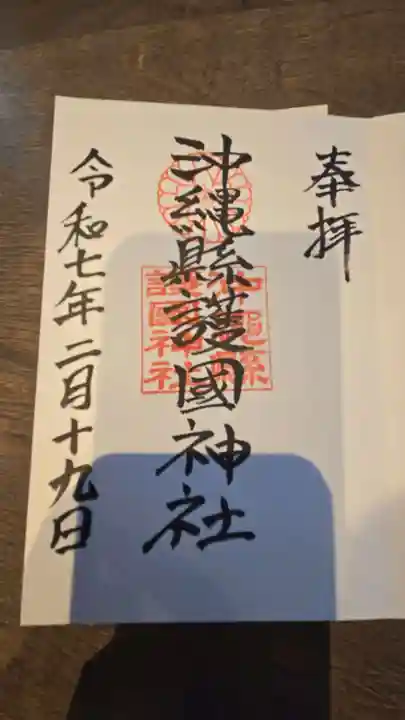 奉拝
沖縄縣護國神社
沖縄縣
護國神社
令和七年二月十九日